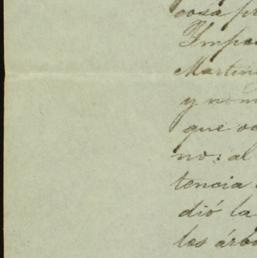 cosa pr
Impa
Martin
y nom
que oc
no: al
tencia
dió la
los árb